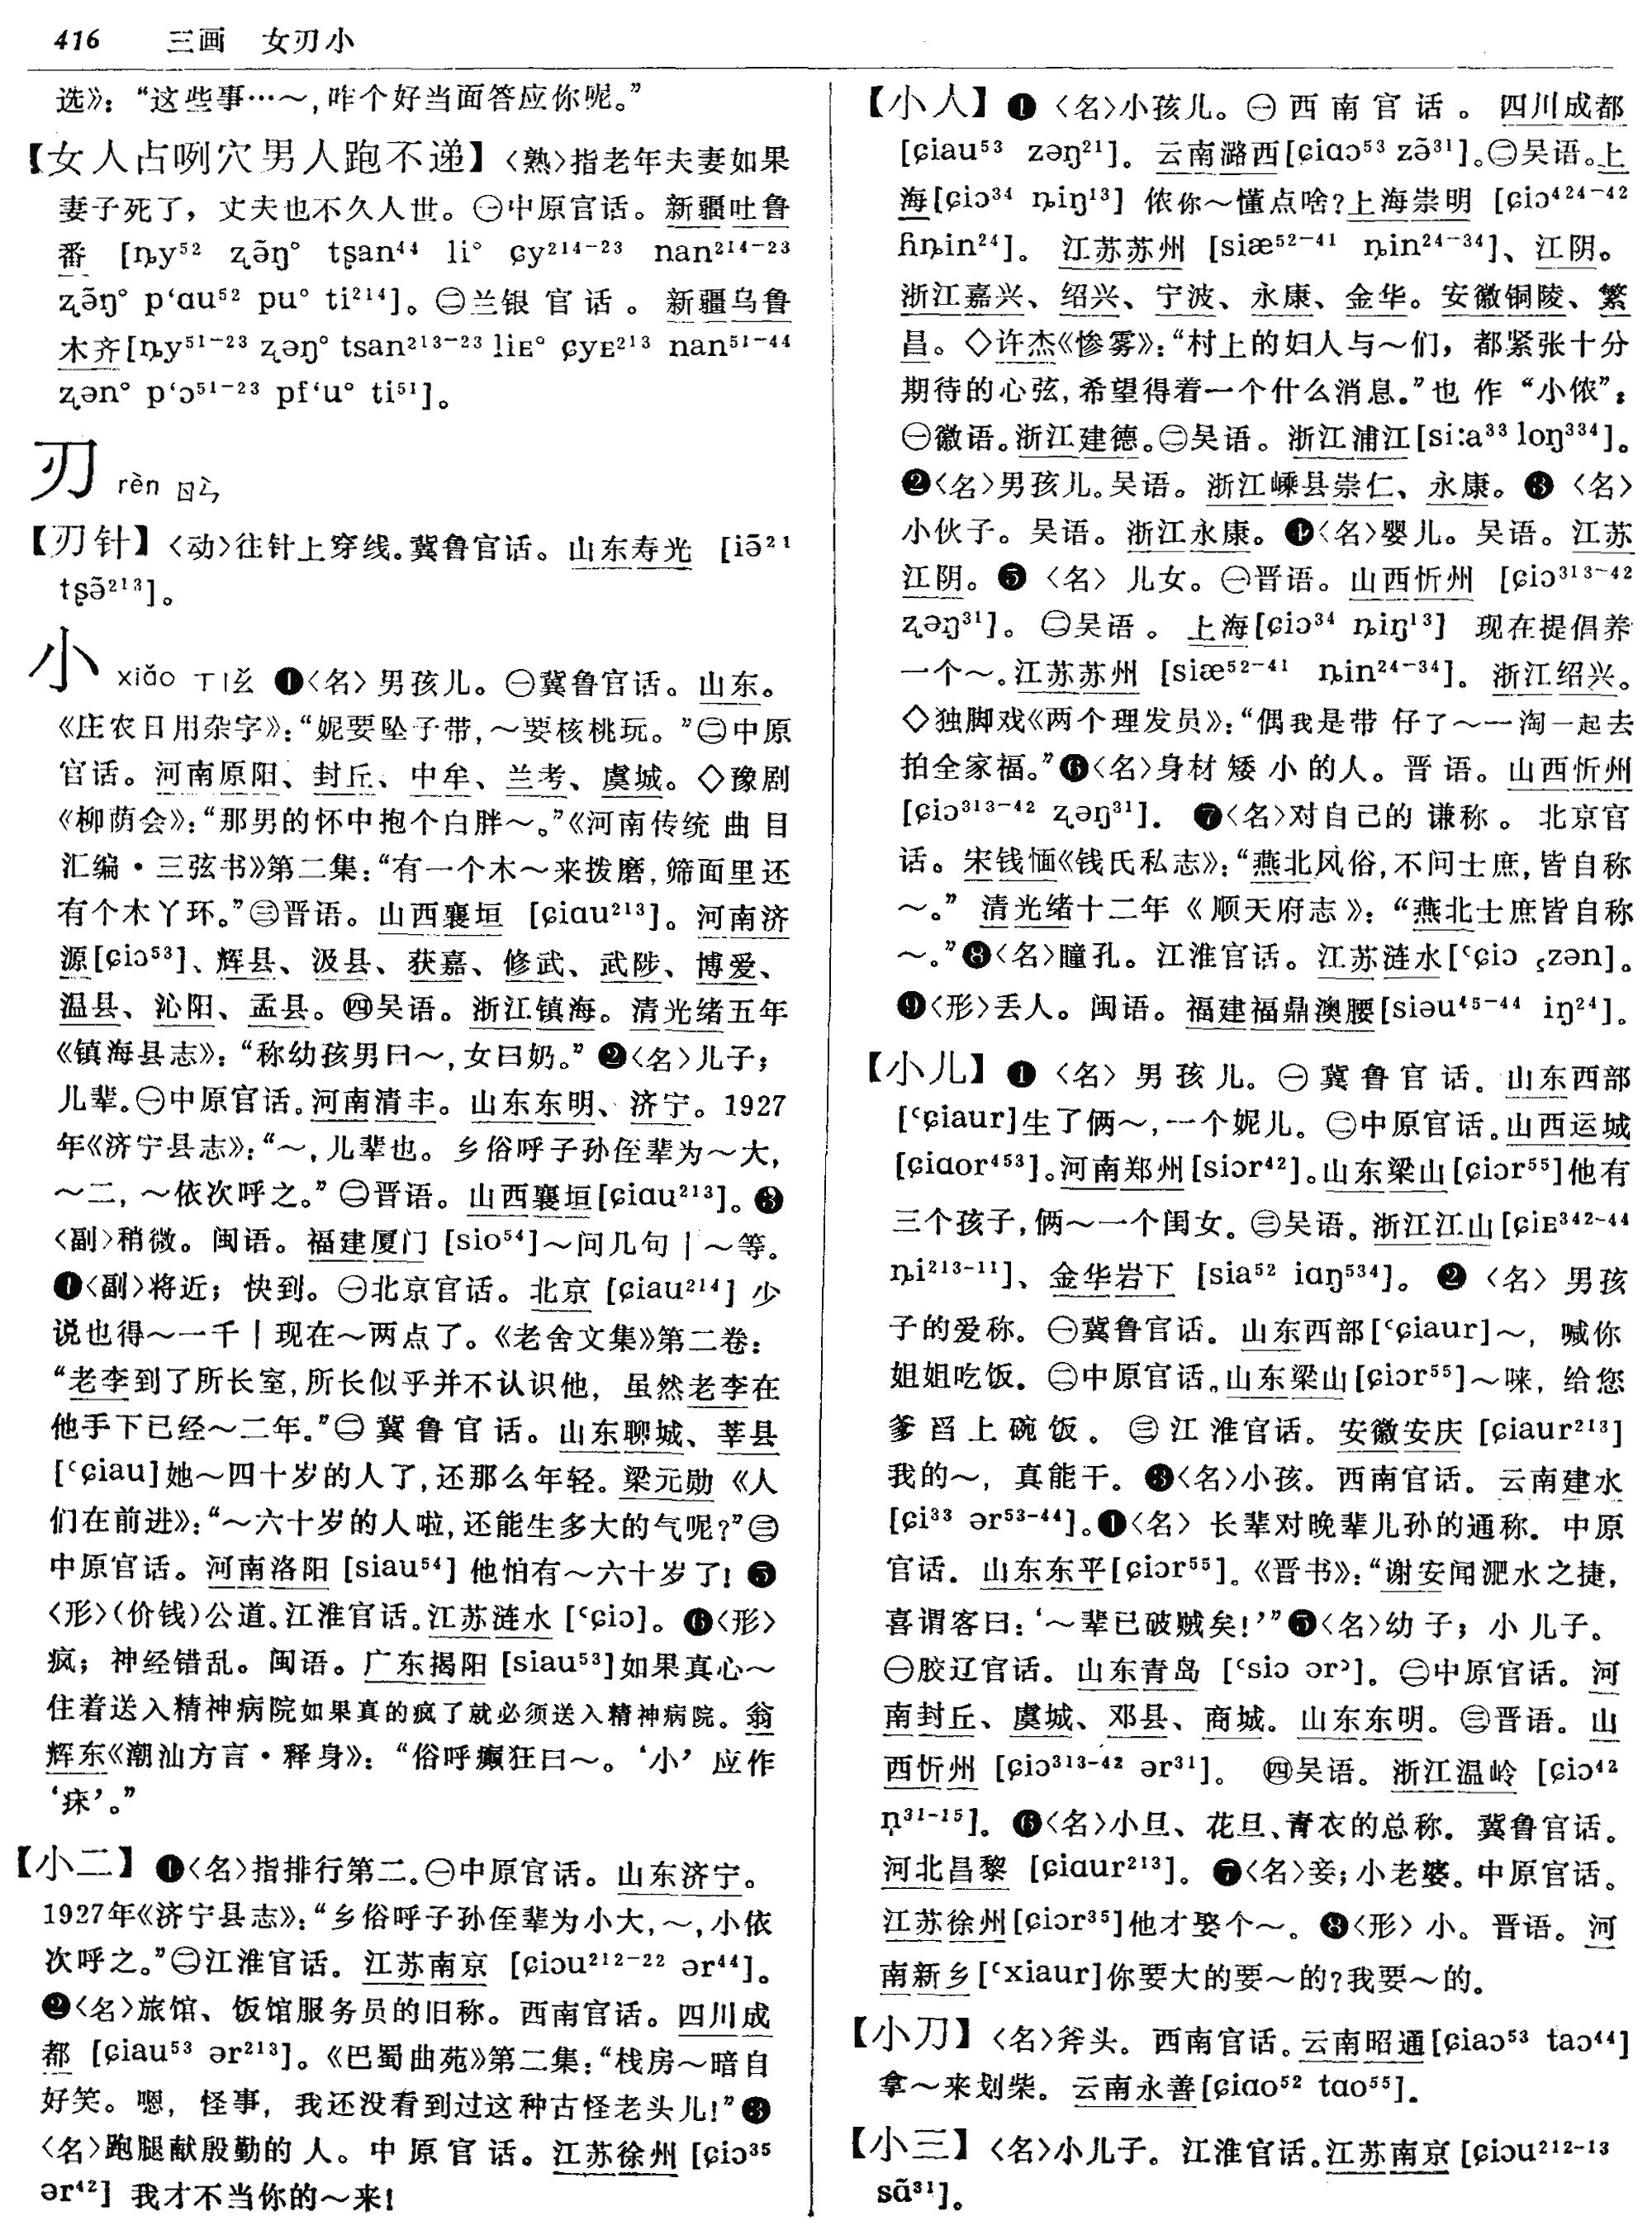 416 三画 女刃小
选》：“这些事…～，咋个好当面答应你呢。”
【女人占咧穴男人跑不递】〈熟〉指老年夫妻如果
妻子死了，丈夫也不久人世。㊀中原官话。新疆吐鲁
番 [ȵy⁵² ʐə̃ŋ° tʂan⁴⁴ li° ɕy²¹⁴⁻²³ nan²¹⁴⁻²³
ʐə̃ŋ° p‘ɑu⁵² pu° ti²¹⁴]。㊁兰银官话。新疆乌鲁
木齐[ȵy⁵¹⁻²³ ʐəŋ° tsan²¹³⁻²³ liᴇ° ɕyᴇ²¹³ nan⁵¹⁻⁴⁴
ʐən° p‘ɔ⁵¹⁻²³ pf‘u° ti⁵¹]。
刃 rèn ㄖㄣˋ
【刃针】〈动〉往针上穿线。冀鲁官话。山东寿光 [iə̃²¹
tʂə̃²¹³]。
小 xiǎo ㄒㄧㄠˇ ❶〈名〉男孩儿。㊀冀鲁官话。山东。
《庄农日用杂字》：“妮要坠子带，～要核桃玩。”㊁中原
官话。河南原阳、封丘、中牟、兰考、虞城。◇豫剧
《柳荫会》：“那男的怀中抱个白胖～。”《河南传统曲目
汇编·三弦书》第二集：“有一个木～来拨磨，筛面里还
有个木丫环。”㊂晋语。山西襄垣 [ɕiɑu²¹³]。河南济
源[ɕiɔ⁵³]、辉县、汲县、获嘉、修武、武陟、博爱、
温县、沁阳、孟县。㊃吴语。浙江镇海。清光绪五年
《镇海县志》：“称幼孩男曰～，女曰奶。”❷〈名〉儿子；
儿辈。㊀中原官话。河南清丰。山东东明、济宁。1927
年《济宁县志》：“～，儿辈也。乡俗呼子孙侄辈为～大，
～二，～依次呼之。”㊁晋语。山西襄垣[ɕiɑu²¹³]。❸
〈副〉稍微。闽语。福建厦门 [sio⁵⁴]～问几句｜～等。
❹〈副〉将近；快到。㊀北京官话。北京 [ɕiau²¹⁴] 少
说也得～一千｜现在～两点了。《老舍文集》第二卷：
“老李到了所长室，所长似乎并不认识他，虽然老李在
他手下已经～二年。”㊁冀鲁官话。山东聊城、莘县
[ʿɕiau]她～四十岁的人了，还那么年轻。梁元勋《人
们在前进》：“～六十岁的人啦，还能生多大的气呢？”㊂
中原官话。河南洛阳 [siau⁵⁴] 他怕有～六十岁了！❺
〈形〉（价钱）公道。江淮官话。江苏涟水 [ʿɕiɔ]。❻〈形〉
疯；神经错乱。闽语。广东揭阳 [siau⁵³]如果真心～
住着送入精神病院如果真的疯了就必须送入精神病院。翁
辉东《潮汕方言·释身》：“俗呼癫狂曰～。‘小’应作
‘㾕’。”
【小二】❶〈名〉指排行第二。㊀中原官话。山东济宁。
1927年《济宁县志》：“乡俗呼子孙侄辈为小大，～，小依
次呼之。”㊁江淮官话。江苏南京 [ɕiɔu²¹²⁻²² ər⁴⁴]。
❷〈名〉旅馆、饭馆服务员的旧称。西南官话。四川成
都 [ɕiau⁵³ ər²¹³]。《巴蜀曲苑》第二集：“栈房～暗自
好笑。嗯，怪事，我还没看到过这种古怪老头儿！”❸
〈名〉跑腿献殷勤的人。中原官话。江苏徐州 [ɕiɔ³⁵
ər⁴²] 我才不当你的～来！
【小人】❶〈名〉小孩儿。㊀西南官话。四川成都
[ɕiau⁵³ zəŋ²¹]。云南潞西[ɕiɑɔ⁵³ zə̃³¹]。㊁吴语。上
海[ɕiɔ³⁴ ȵiŋ¹³] 侬你～懂点啥？上海崇明 [ɕiɔ⁴²⁴⁻⁴²
ɦȵin²⁴]。江苏苏州 [siæ⁵²⁻⁴¹ ȵin²⁴⁻³⁴]、江阴。
浙江嘉兴、绍兴、宁波、永康、金华。安徽铜陵、繁
昌。◇许杰《惨雾》：“村上的妇人与～们，都紧张十分
期待的心弦，希望得着一个什么消息。”也作“小侬”：
㊀徽语。浙江建德。㊁吴语。浙江浦江[si:a³³ loŋ³³⁴]。
❷〈名〉男孩儿。吴语。浙江嵊县崇仁、永康。❸〈名〉
小伙子。吴语。浙江永康。❹〈名〉婴儿。吴语。江苏
江阴。❺〈名〉儿女。㊀晋语。山西忻州 [ɕiɔ³¹³⁻⁴²
ʐəŋ³¹]。㊁吴语。上海[ɕiɔ³⁴ ȵiŋ¹³] 现在提倡养
一个～。江苏苏州 [siæ⁵²⁻⁴¹ ȵin²⁴⁻³⁴]。浙江绍兴。
◇独脚戏《两个理发员》：“偶我是带仔了～一淘一起去
拍全家福。”❻〈名〉身材矮小的人。晋语。山西忻州
[ɕiɔ³¹³⁻⁴² ʐəŋ³¹]。❼〈名〉对自己的谦称。北京官
话。宋钱愐《钱氏私志》：“燕北风俗，不问士庶，皆自称
～。”清光绪十二年《顺天府志》：“燕北士庶皆自称
～。”❽〈名〉瞳孔。江淮官话。江苏涟水[ʿɕiɔ ꜁zən]。
❾〈形〉丢人。闽语。福建福鼎澳腰[siəu⁴⁵⁻⁴⁴ iŋ²⁴]。
【小儿】❶〈名〉男孩儿。㊀冀鲁官话。山东西部
[ʿɕiaur]生了俩～，一个妮儿。㊁中原官话。山西运城
[ɕiɑor⁴⁵³]。河南郑州[siɔr⁴²]。山东梁山[ɕiɔr⁵⁵]他有
三个孩子，俩～一个闺女。㊂吴语。浙江江山[ɕiᴇ³⁴²⁻⁴⁴
ȵi²¹³⁻¹¹]、金华岩下 [sia⁵² iɑŋ⁵³⁴]。❷〈名〉男孩
子的爱称。㊀冀鲁官话。山东西部[ʿɕiaur]～，喊你
姐姐吃饭。㊁中原官话。山东梁山[ɕiɔr⁵⁵]～咪，给您
爹舀上碗饭。㊂江淮官话。安徽安庆 [ɕiaur²¹³]
我的～，真能干。❸〈名〉小孩。西南官话。云南建水
[ɕi³³ ər⁵³⁻⁴⁴]。❹〈名〉长辈对晚辈儿孙的通称。中原
官话。山东东平[ɕiɔr⁵⁵]。《晋书》：“谢安闻淝水之捷，
喜谓客曰：‘～辈已破贼矣！’”❺〈名〉幼子；小儿子。
㊀胶辽官话。山东青岛 [ʿsiɔ ərʾ]。㊁中原官话。河
南封丘、虞城、邓县、商城。山东东明。㊂晋语。山
西忻州 [ɕiɔ³¹³⁻⁴² ər³¹]。㊃吴语。浙江温岭 [ɕiɔ⁴²
n̩³¹⁻¹⁵]。❻〈名〉小旦、花旦、青衣的总称。冀鲁官话。
河北昌黎 [ɕiɑur²¹³]。❼〈名〉妾；小老婆。中原官话。
江苏徐州[ɕiɔr³⁵]他才娶个～。❽〈形〉小。晋语。河
南新乡[ʿxiaur]你要大的要～的？我要～的。
【小刀】〈名〉斧头。西南官话。云南昭通[ɕiaɔ⁵³ taɔ⁴⁴]
拿～来划柴。云南永善[ɕiɑo⁵² tɑo⁵⁵]。
【小三】〈名〉小儿子。江淮官话。江苏南京[ɕiɔu²¹²⁻¹³
sã³¹]。